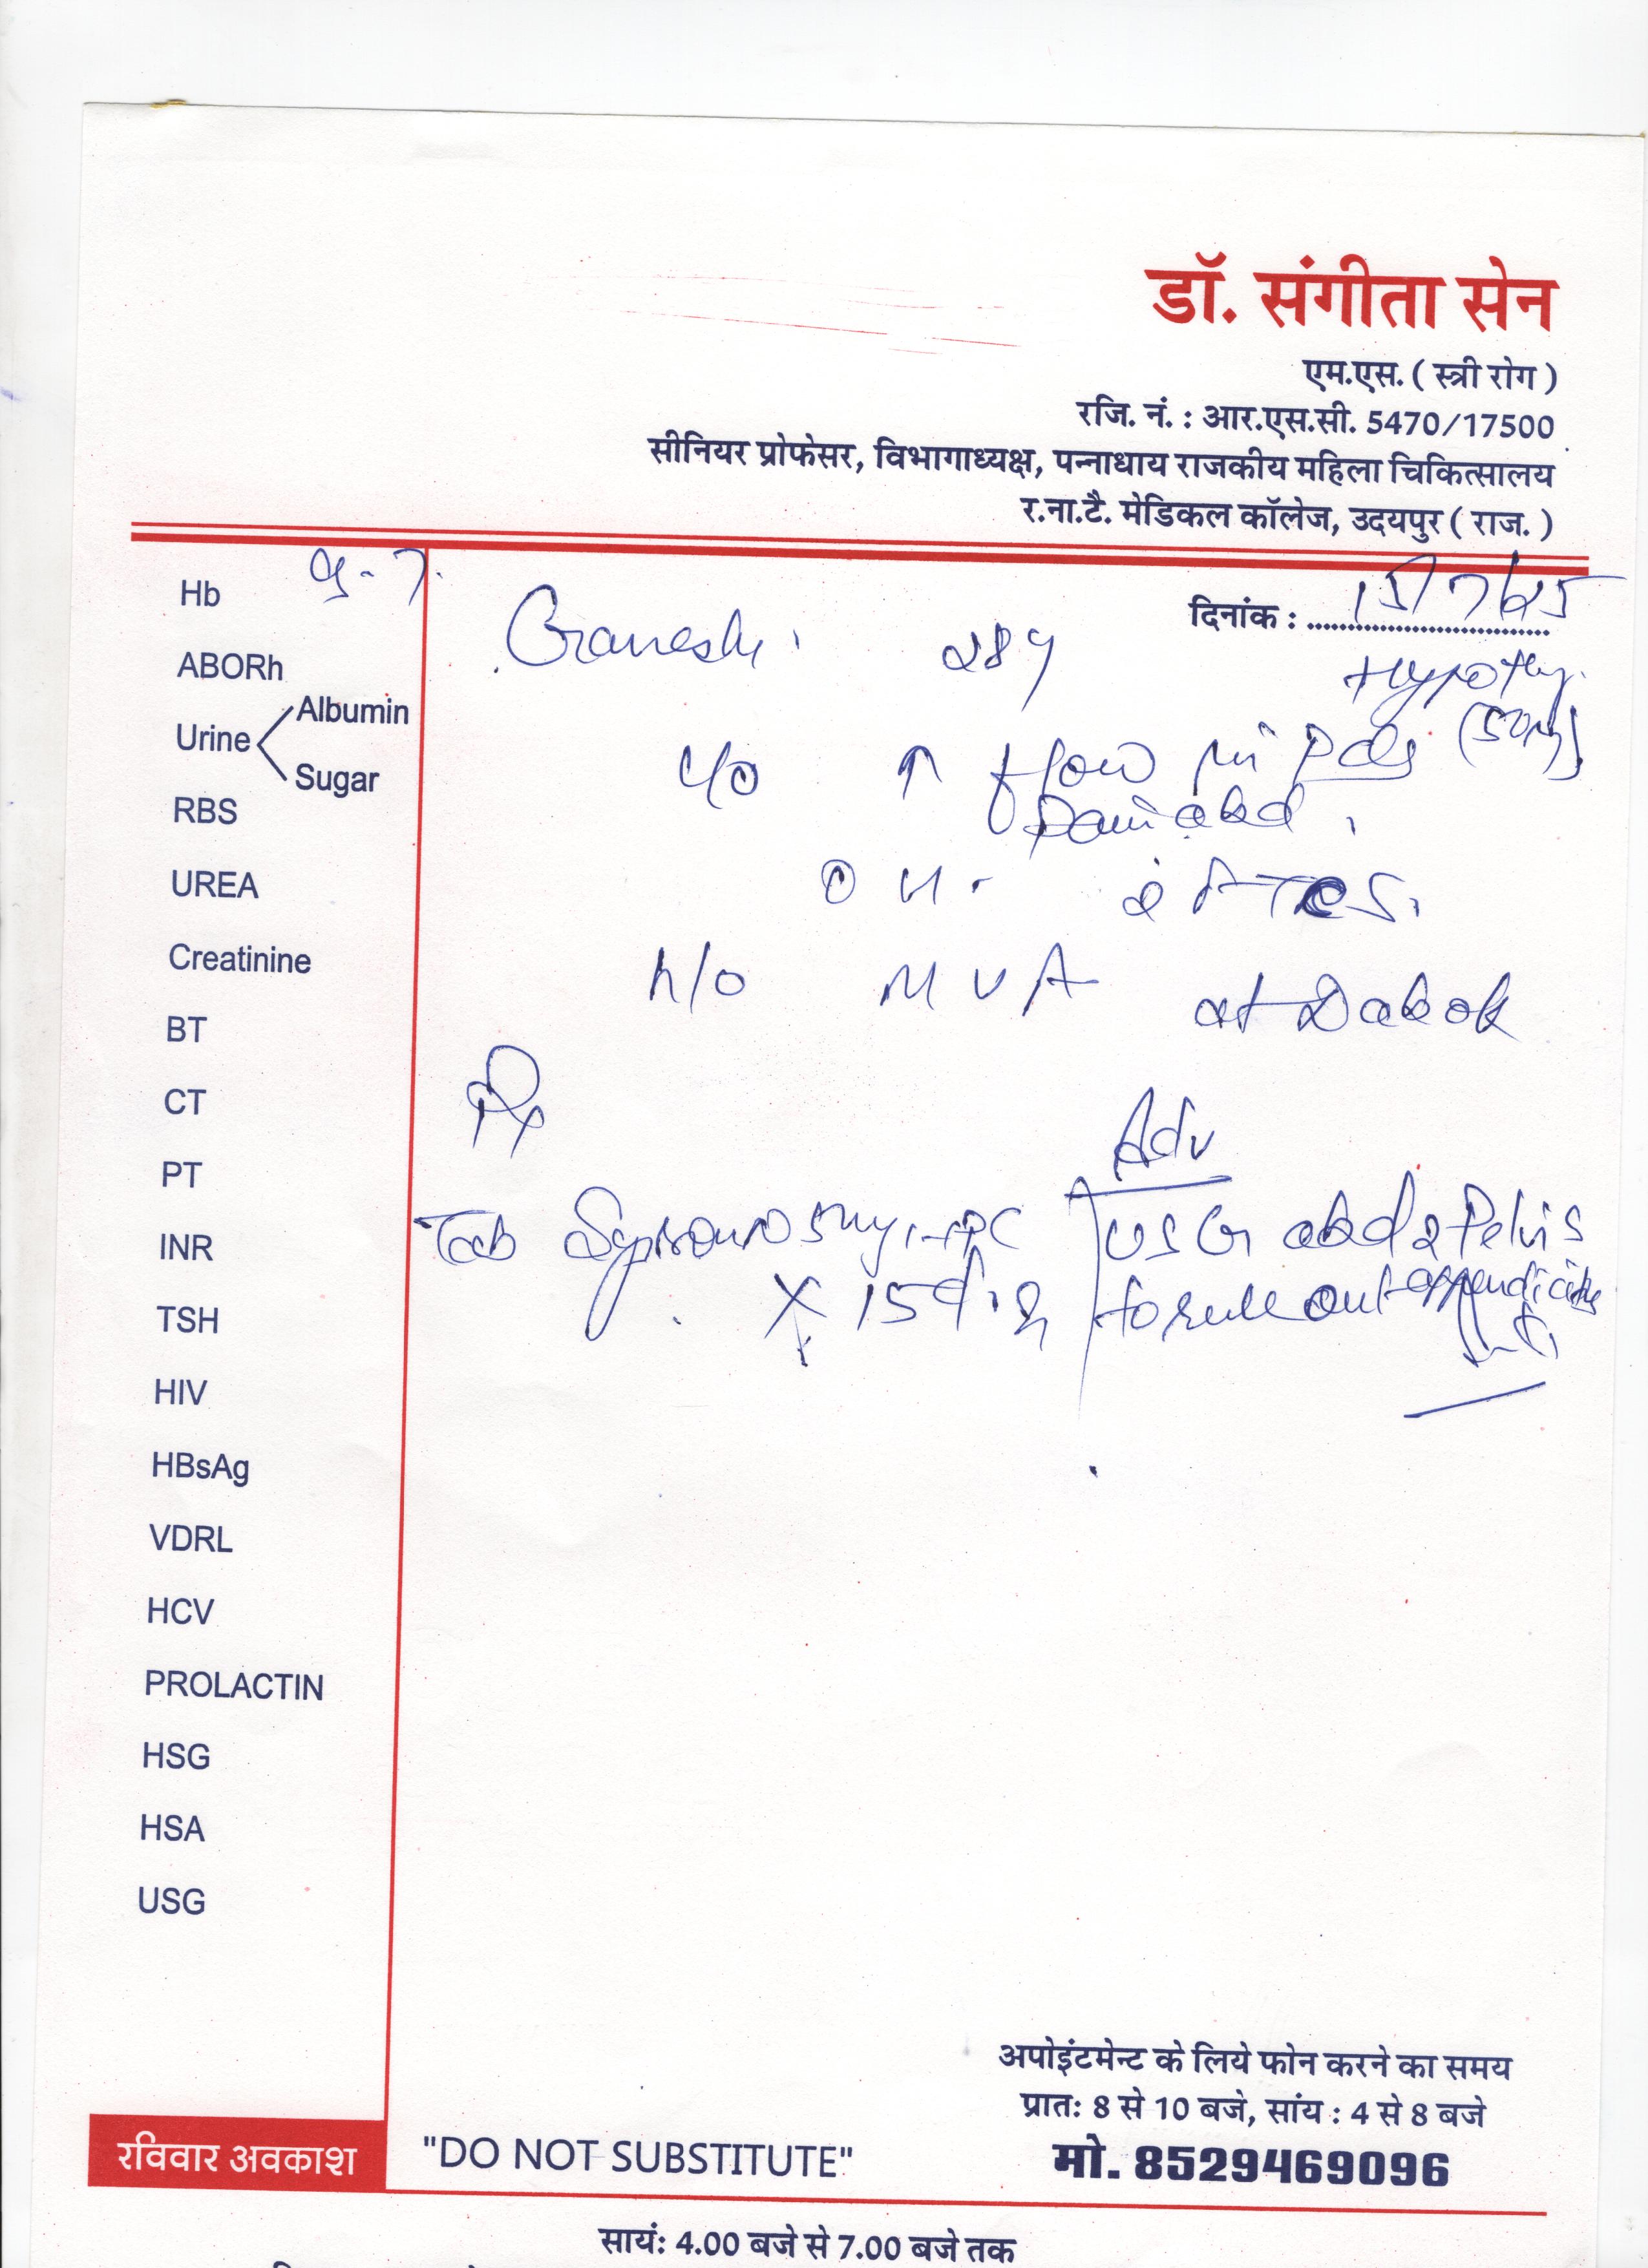 डॉ. संगीता सेन
एम.एस. ( स्त्री रोग )
रजि. नं. : आर.एस.सी. 5470/17500
सीनियर प्रोफेसर, विभागाध्यक्ष, पन्नाधाय राजकीय महिला चिकित्सालय
र.ना.टै. मेडिकल कॉलेज, उदयपुर ( राज. )
दिनांक : 15/7/25
Hb 9.7
ABORh
Urine Albumin
Sugar
RBS
UREA
Creatinine
BT
CT
PT
INR
TSH
HIV
HBsAg
VDRL
HCV
PROLACTIN
HSG
HSA
USG
28y
Hypothy.
c/o ↑ flow in Pds
Pain abd.
h/o MVA at Dabok
Rx
Adv
Tab 5mg
X 15d
USG abd & Pelvis
to rule out appendicitis
रविवार अवकाश
"DO NOT SUBSTITUTE"
अपोइंटमेन्ट के लिये फोन करने का समय
प्रातः 8 से 10 बजे, सांय : 4 से 8 बजे
मो. 8529469096
सायं: 4.00 बजे से 7.00 बजे तक